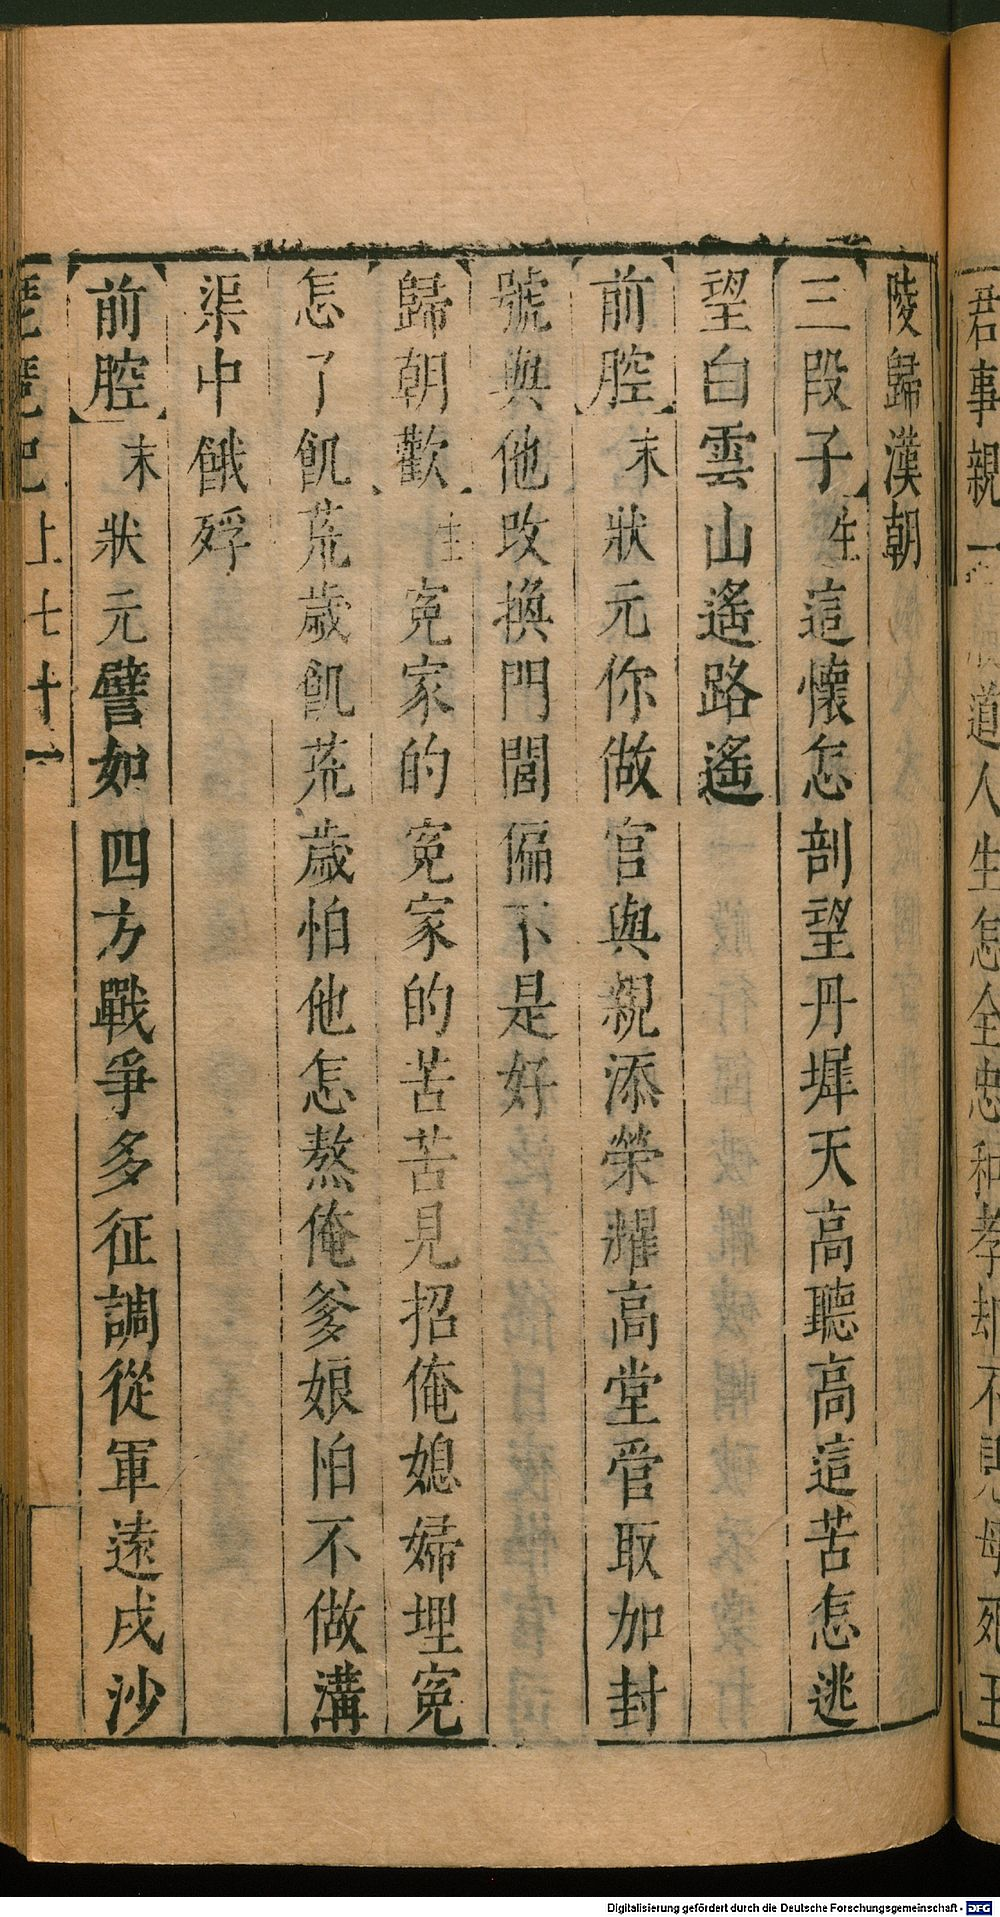 君事親
道人生怎全忠和孝却不見母死王
陵歸漢朝
三段子 生 這懷怎剖望丹墀天高聽高這苦怎逃
望白雲山遙路遙
前腔 末 狀元你做官與親添榮耀高堂管取加封
號與他改換門閭偏不是好
歸朝歡 生 寃家的寃家的苦苦見招俺媳婦埋寃
怎了飢荒歲飢荒歲怕他怎熬俺爹娘怕不做溝
渠中餓殍
前腔 末 狀元譬如四方戰爭多征調從軍遠戍沙
琵琶記 上 七十一
Digitalisierung gefördert durch die Deutsche Forschungsgemeinschaft - DFG